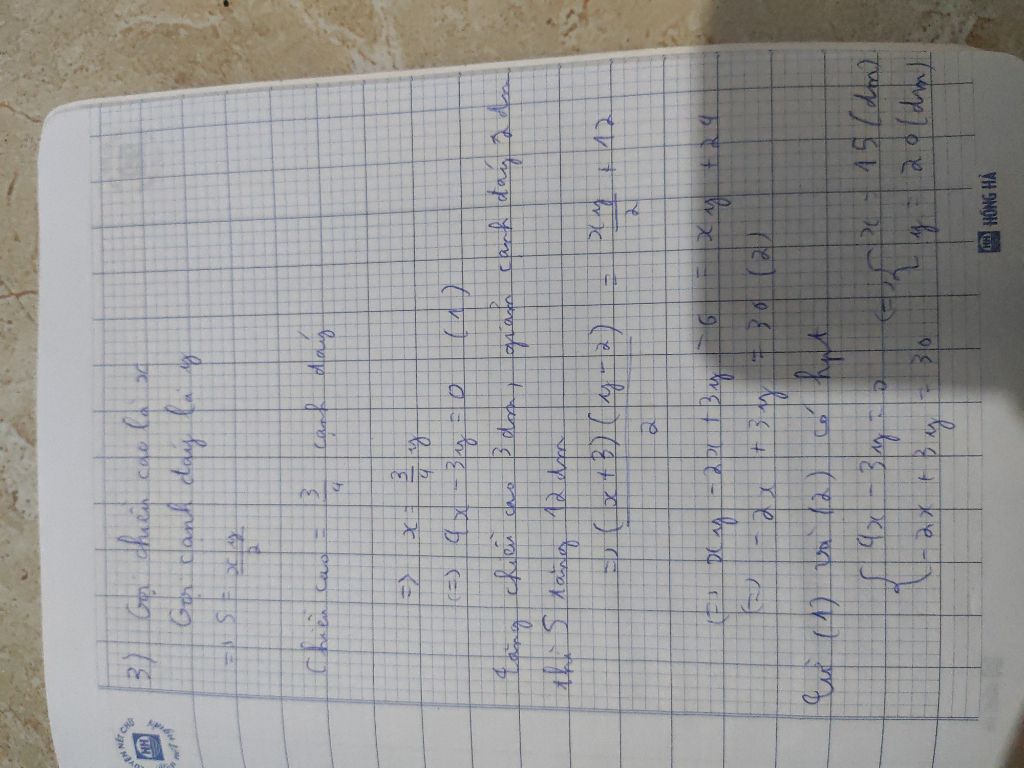 3) Gọi chiều cao là x
Gọi cạnh đáy là y
=> S = xy/2
Chiều cao = 3/4 cạnh đáy
=> x = 3/4 y
(=) 4x - 3y = 0 (1)
Tăng chiều cao 3 dm, giảm cạnh đáy 2 dm
thì S tăng 12 dm
=> (x+3)(y-2)/2 = xy/2 + 12
(=) xy - 2x + 3y - 6 = xy + 24
(=) - 2x + 3y = 30 (2)
Từ (1) và (2) có hpt
{ 4x - 3y = 0 (=) { x = 15 (dm)
{ -2x + 3y = 30 { y = 20 (dm)
HỒNG HÀ